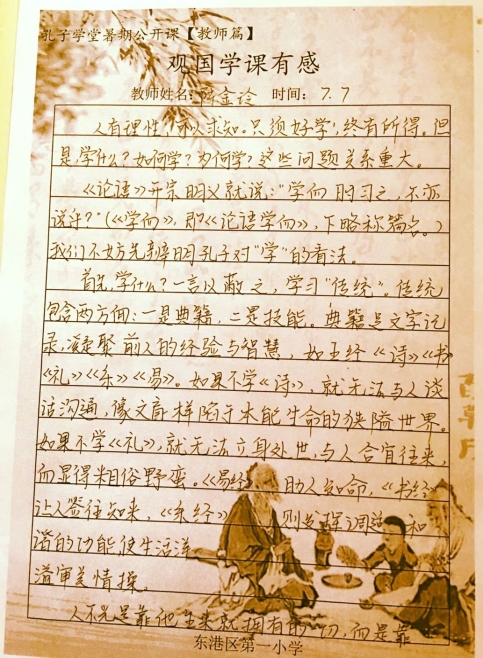 孔子学堂暑期公开课【教师篇】
观国学课有感
教师姓名: 陈金玲 时间: 7.7
人有理性,可以求知。只须好学,终有所得。但
是,学什么?如何学?为何学?这些问题关系重大。
《论语》开宗明义就说:“学而时习之,不亦
说乎?”(《学而》,即《论语学而》,下略称篇名。)
我们不妨先辨明孔子对“学”的看法。
首先,学什么?一言以蔽之,学习“传统”。传统
包含两方面:一是典籍,二是技能。典籍是文字记
录,凝聚前人的经验与智慧,如五经《诗》《书》
《礼》《乐》《易》。如果不学《诗》,就无法与人谈
话沟通,像文盲一样陷于本能生命的狭隘世界。
如果不学《礼》,就无法立身处世,与人合宜往来,
而显得粗俗野蛮。《易经》助人知命,《书经》
让人鉴往知来,《乐经》则发挥调谐和
谐的功能,使生活洋
溢审美情操。
人不光是靠他生来就拥有的一切,而是靠
东港区第一小学